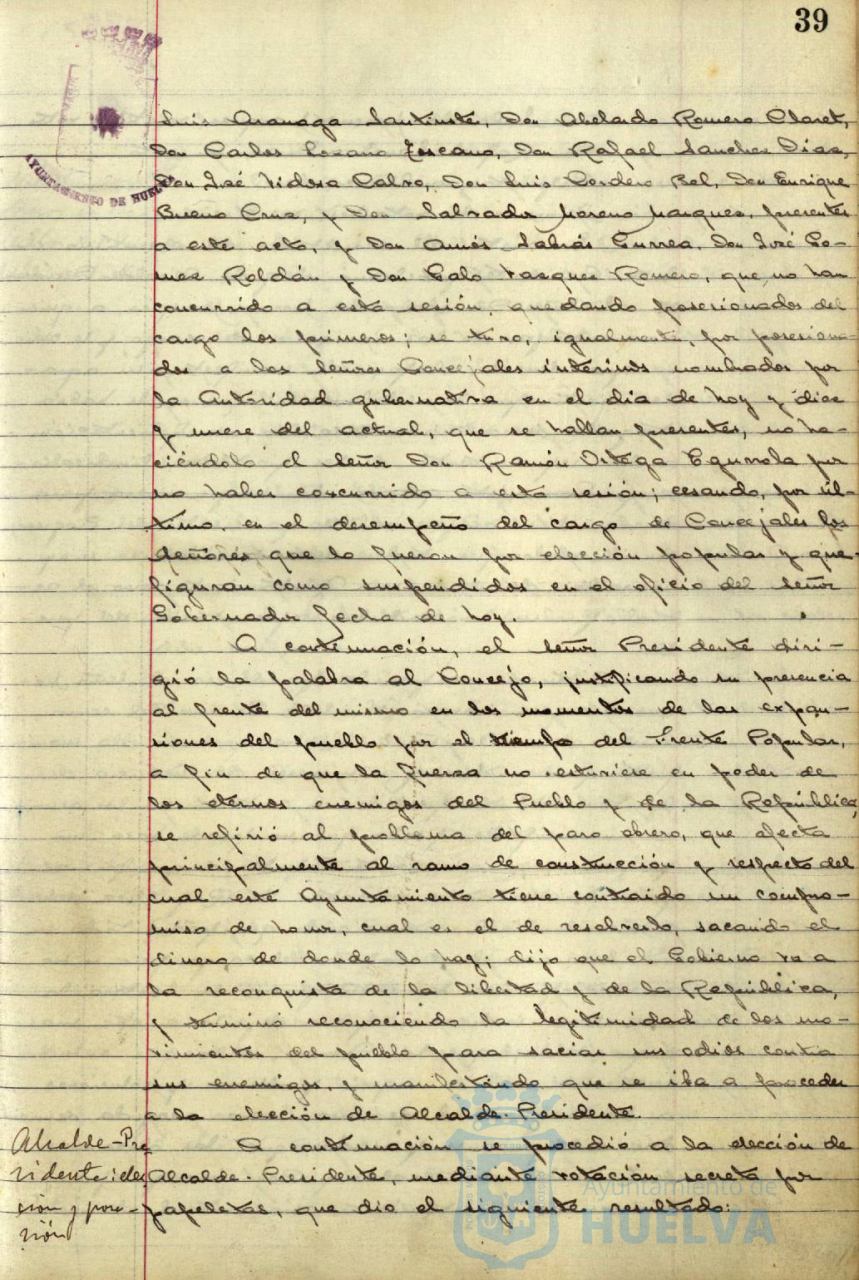 39
AYUNTAMIENTO DE HUELVA
Luis Aranaga Santiuste, Don Abelardo Romero Claret,
Don Carlos Lozano Toscano, Don Rafael Sanchez Diaz,
Don José Vidosa Calvo, Don Luis Cordero Bel, Don Enrique
Bueno Cruz, y Don Salvador Moreno Marquez, presentes
a este acto, y Don Amós Sabrás Gurrea, Don José Go-
mez Roldán y Don Galo Vazquez Romero, que no han
concurrido a esta sesión, quedando posesionados del
cargo los primeros; se tuvo, igualmente, por posesiona-
dos a los Señores Concejales interinos nombrados por
la Autoridad gubernativa en el dia de hoy y diez
y nueve del actual, que se hallan presentes, no ha-
ciéndolo el Señor Don Ramón Ortega Egurrola por
no haber concurrido a esta sesión; cesando, por úl-
timo, en el desempeño del cargo de Concejales los
Señores que lo fueron por elección popular y que
figuran como suspendidos en el oficio del Señor
Gobernador fecha de hoy.
A continuación, el Señor Presidente diri-
gió la palabra al Concejo, justificando su presencia
al frente del mismo en los momentos de las expan-
siones del pueblo por el tiempo del Frente Popular,
a fin de que la fuerza no estuviese en poder de
los eternos enemigos del Pueblo y de la República,
se refirió al problema del paro obrero, que afecta
principalmente al ramo de construcción y respecto del
cual este Ayuntamiento tiene contraido un compro-
miso de honor, cual es el de resolverlo, sacando el
dinero de donde lo hay; dijo que el Gobierno va a
la reconquista de la libertad y de la República,
y terminó reconociendo la legitimidad de los mo-
vimientos del pueblo para saciar sus odios contra
sus enemigos, y manifestando que se iba a proceder
a la elección de Alcalde-Presidente.
Alcalde-Pre
sidente: elec
ción y pose-
sión
A continuación se procedió a la elección de
Alcalde-Presidente, mediante votación secreta por
papeletas, que dio el siguiente resultado:
Ayuntamiento de
HUELVA